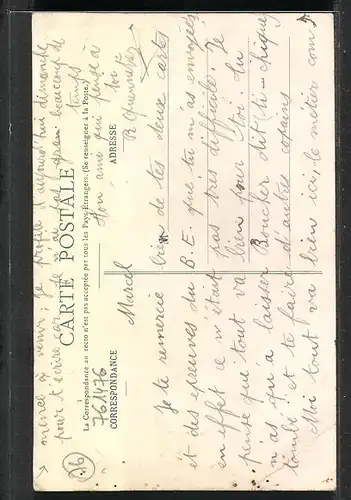 CARTE POSTALE
La Correspondance au recto n'est pas acceptée par tous les Pays Étrangers. (Se renseigner à la Poste.)
CORRESPONDANCE
ADRESSE
761476
Marcel
Je te remercie bien de tes deux cartes
et des épreuves du B. E. que tu m'as envoyées
en effet ce n'était pas très difficile. Je
pense que tout va bien pour toi. Tu
n'as qu'à laisser Boucher dit (ti-
tombé et te faire d'autres copains
Moi tout va bien ici, le métier com
mence à venir; Je profite d'aujourd'hui dimanche
pour t'écrire car je n'ai pas beaucoup de
temps
Ton ami qui pense à
toi
R
36